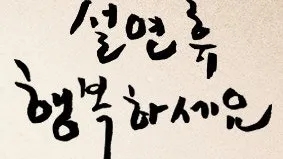 설연휴
행복하세요